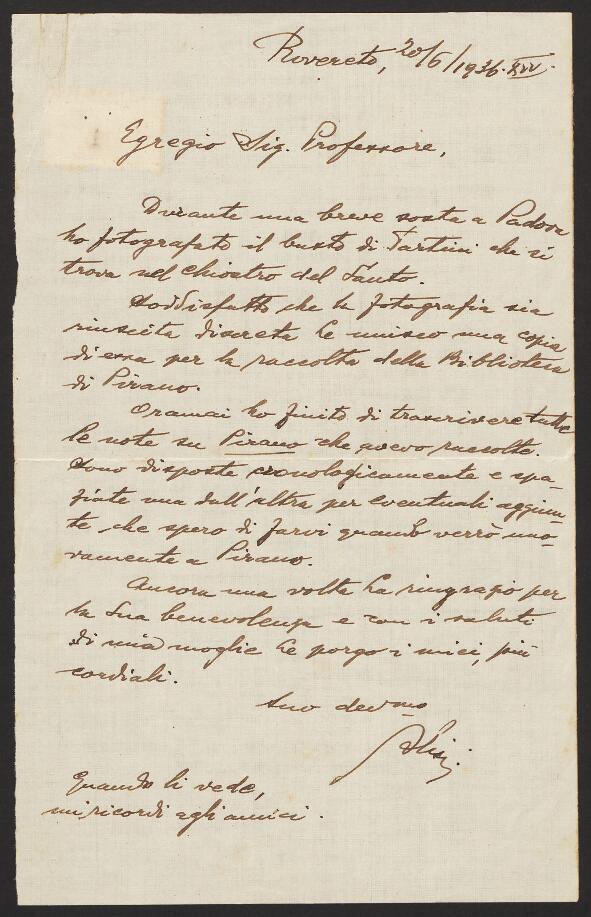 Rovereto, 20/6/1936. XIV.
Egregio Sig. Professore,
Durante una breve sosta a Padova
ho fotografato il busto di Tartini che si
trova nel chiostro del Santo.
Soddisfatto che la fotografia sia
riuscita discreta Le unisco una copia
di essa per la raccolta della Biblioteca
di Pirano.
Oramai ho finito di trascrivere tutte
le note su Pirano che avevo raccolte.
Sono disposte cronologicamente e spa-
ziate una dall'altra per eventuali aggiun-
te che spero di farvi quando verrò nuo-
vamente a Pirano.
Ancora una volta La ringrazio per
la Sua benevolenza e con i saluti
di mia moglie Le porgo i miei, più
cordiali.
Suo devmo
Quando li vede,
mi ricordi agli amici.